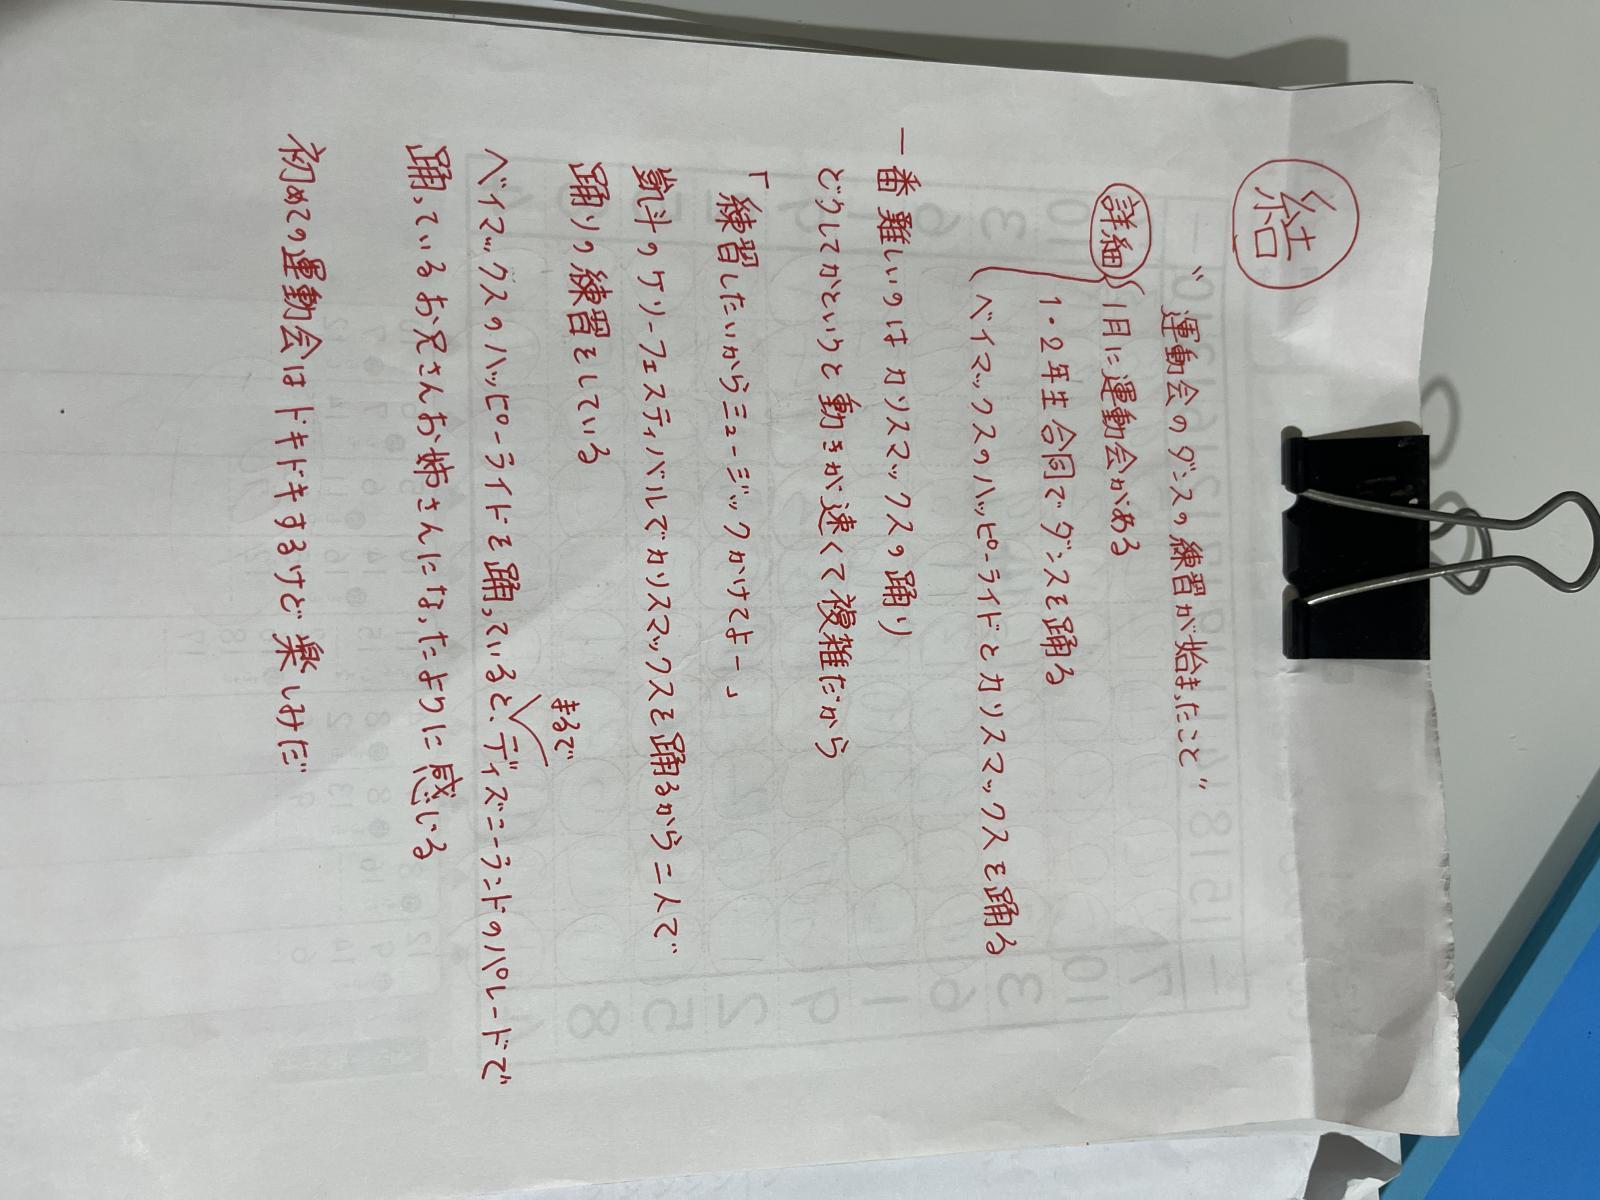 結
"運動会のダンスの練習が始まったこと"
詳細 1月に運動会がある
1・2年生合同でダンスを踊る
ベイマックスのハッピーライドとカリスマックスを踊る
一番難しいのはカリスマックスの踊り
どうしてかというと動きが速くて複雑だから
「練習したいからミュージックかけてよー」
凱斗のケリーフェスティバルでカリスマックスを踊るから二人で
踊りの練習をしている
まるで
ベイマックスのハッピーライドを踊っていると、ディズニーランドのパレードで
踊っているお兄さんお姉さんになったように感じる
初めての運動会はドキドキするけど楽しみだ